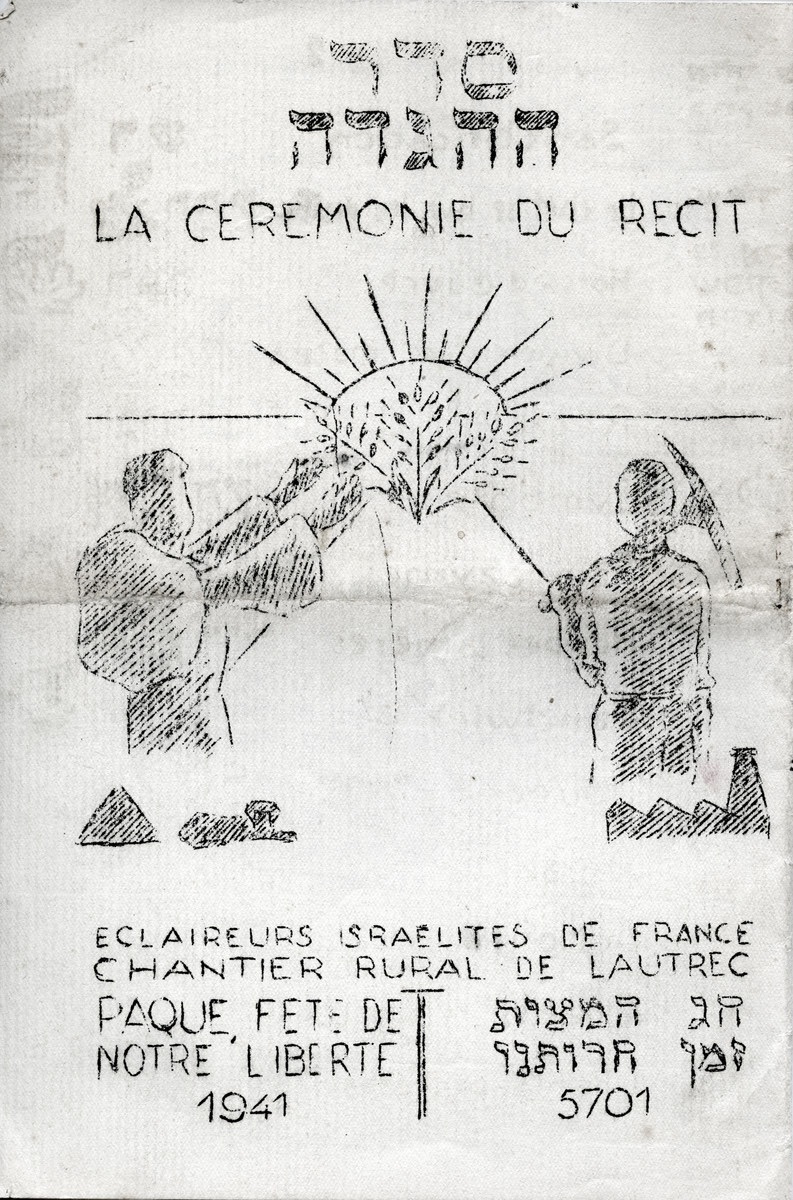 סדר
ההגדה
LA CEREMONIE DU RECIT
ECLAIREURS ISRAELITES DE FRANCE
CHANTIER RURAL DE LAUTREC
PAQUE, FETE DE
NOTRE LIBERTE
1941
חג המצות
זמן חרותנו
5701